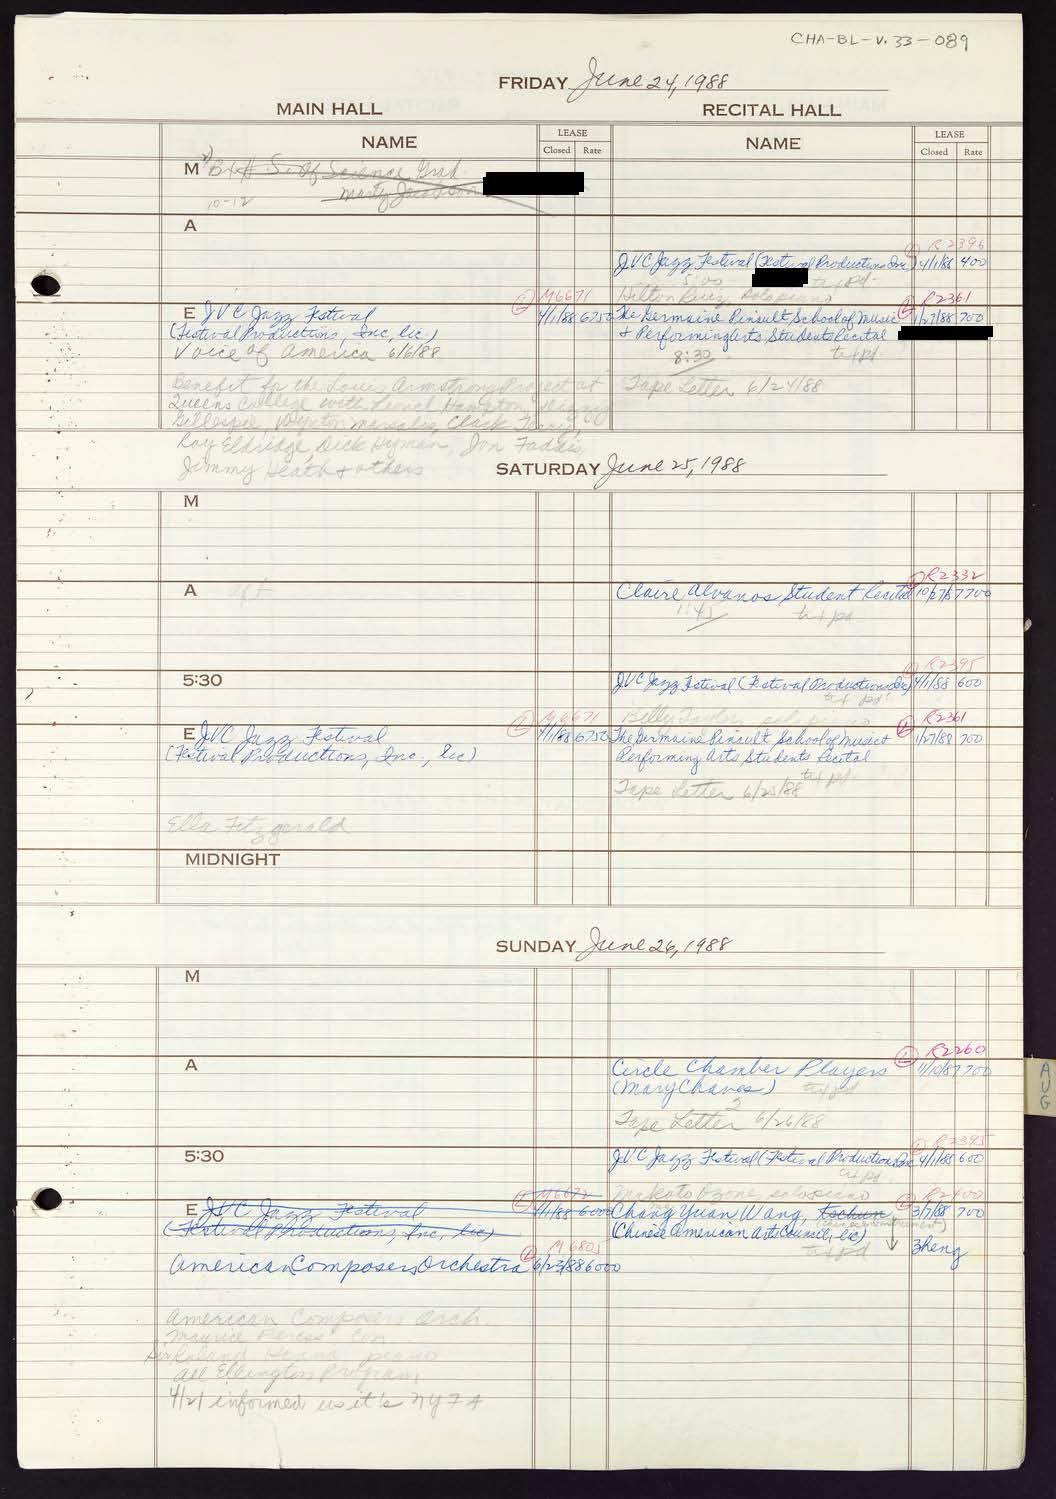 CHA-BL-v. 33-089
FRIDAY June 24, 1988
MAIN HALL
RECITAL HALL
NAME
LEASE
Closed Rate
NAME
LEASE
Closed Rate
M B of Science Grad
Marty Jacobson
10-12
A
R2396
JVC Jazz Festival (Festival Productions Inc) 4/1/88 400
5:00 tx pd.
Hilton Ruiz, solo piano
E JVC Jazz Festival
(Festival Productions, Inc, lic.)
M6671
4/1/88 6750
Voice of America 6/6/88
Benefit for the Louis Armstrong Project at
Queens College with Lionel Hampton, Dizzy
Gillespie, Wynton Marsalis, Clark Terry,
Roy Eldridge, Dick Hyman, Jon Faddis,
Jimmy Heath & others
R2361
The Germaine Pinsult School of Music 1/27/88 700
& Performing Arts Students Recital
8:30 tx pd.
Tape Letter 6/24/88
SATURDAY June 25, 1988
M
A aft
R2332
Claire Alvanos Student Recital 10/27/87 700
1:45 tx pd
5:30
R2395
JVC Jazz Festival (Festival Productions Inc) 4/1/88 600
tx pd.
Billy Taylor, solo piano
E JVC Jazz Festival
(Festival Productions, Inc., lic)
M6671
4/1/88 6750
R2361
The Germaine Pinsult School of Music & 1/27/88 700
Performing Arts Students Recital
tx pd.
Tape Letter 6/25/88
Ella Fitzgerald
MIDNIGHT
SUNDAY June 26, 1988
M
A
R2260
Circle Chamber Players 11/10/87 700
(Mary Chaves) tx pd
2
Tape Letter 6/26/88
5:30
R2395
JVC Jazz Festival (Festival Productions Inc 4/1/88 600
tx pd.
Makoto Ozone, solo piano
E JVC Jazz Festival
(Festival Productions, Inc, lic)
M6672
4/1/88 6000
R2400
Chang Yuan Wang, 3/7/88 700
(Chinese instrument)
(Chinese American Arts Council, lic)
tx pd
Zheng
M6805
American Composers Orchestra 6/23/88 6000
American Composers Orch.
Maurice Peress Con
Sir Roland Hanna piano
All Ellington Program,
4/21 informed us it's NYFA
AUG